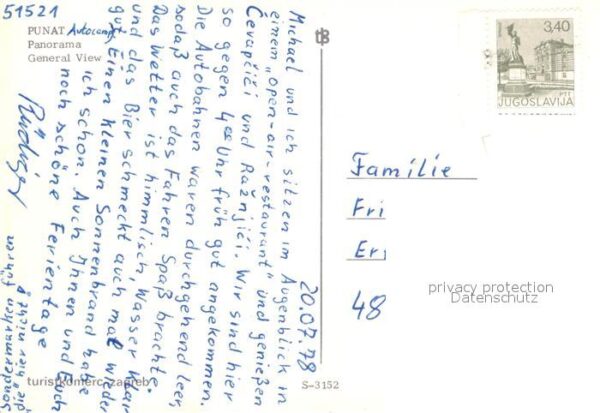 51521
PUNAT Autocamp
Panorama
General View
20.07.78
Michael und ich sitzen im Augenblick in
einem „open-air-restaurant“ und genießen
Čevapčići und Ražnjići. Wir sind hier
so gegen 4⁰⁰ Uhr früh gut angekommen.
Die Autobahnen waren durchgehend leer,
sodaß auch das Fahren Spaß bracht.
Das Wetter ist himmlisch, Wasser klar
und das Bier schmeckt auch mal wieder
gut. Einen kleinen Sonnenbrand habe
ich schon. Auch Ihnen und Euch
noch schöne Ferientage
Rüdiger
führen
hier nicht
3,40
PTT
JUGOSLAVIJA
Familie
Fri
Er
48
privacy protection
Datenschutz
turistkomerc, zagreb
S-3152